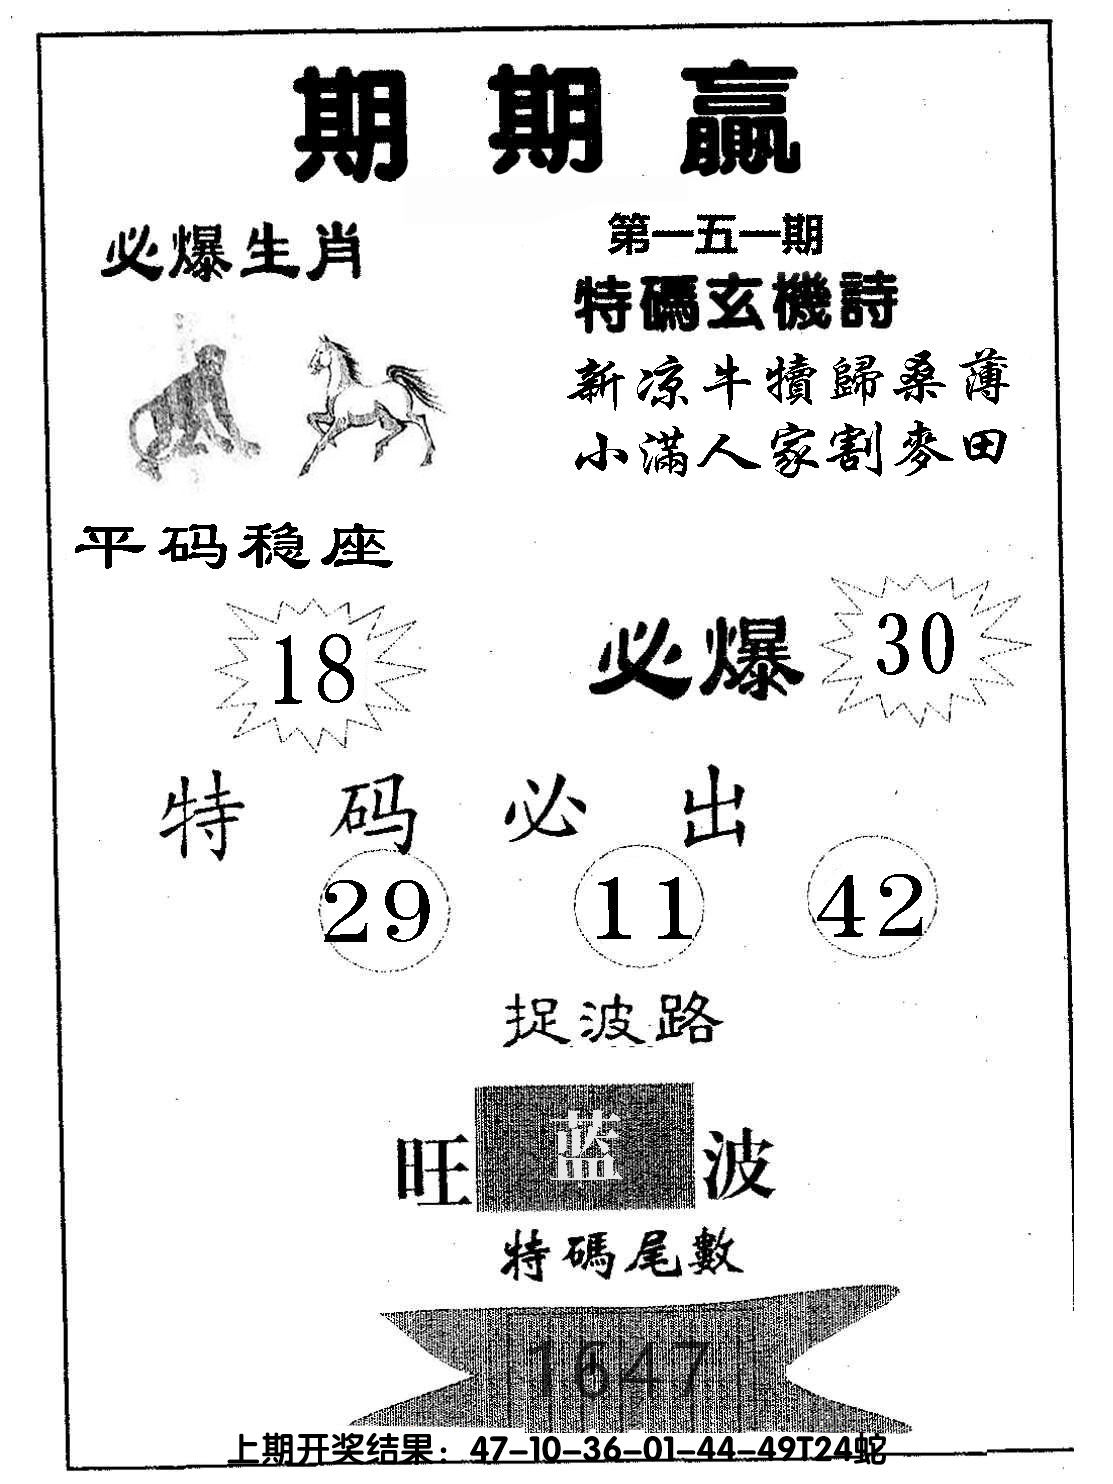 期期赢
第一五一期
必爆生肖
特碼玄機詩
新凉牛犢歸桑薄
小滿人家割麥田
平码稳座
18
必爆
30
特码必出
29 11 42
捉波路
旺蓝波
特碼尾數
1647
上期开奖结果：47-10-36-01-44-49T24蛇